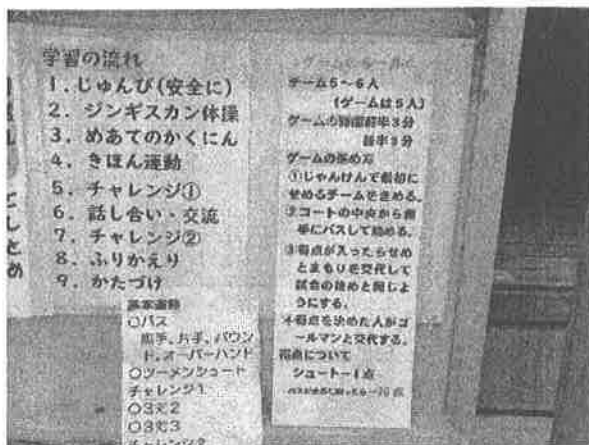 学習の流れ
1. じゅんび(安全に)
2. ジンギスカン体操
3. めあてのかくにん
4. きほん運動
5. チャレンジ①
6. 話し合い・交流
7. チャレンジ②
8. ふりかえり
9. かたづけ
基本運動
○パス
両手、片手、バウン
ド、オーバーハンド
○ツーメンシュート
チャレンジ1
○3対2
○3対3
チャレンジ2
ゲームのルール
チーム5～6人
(ゲームは5人)
ゲームの時間前半3分
後半3分
ゲームの進め方
①じゃんけんで最初に
せめるチームをきめる。
②コートの中央から相
手にパスして始める。
③得点が入ったらせめ
とまもりを交代して
試合の始めと同じよ
うにする。
④得点を決めた人がゴ
ールマンと交代する。
得点について
シュート－1点